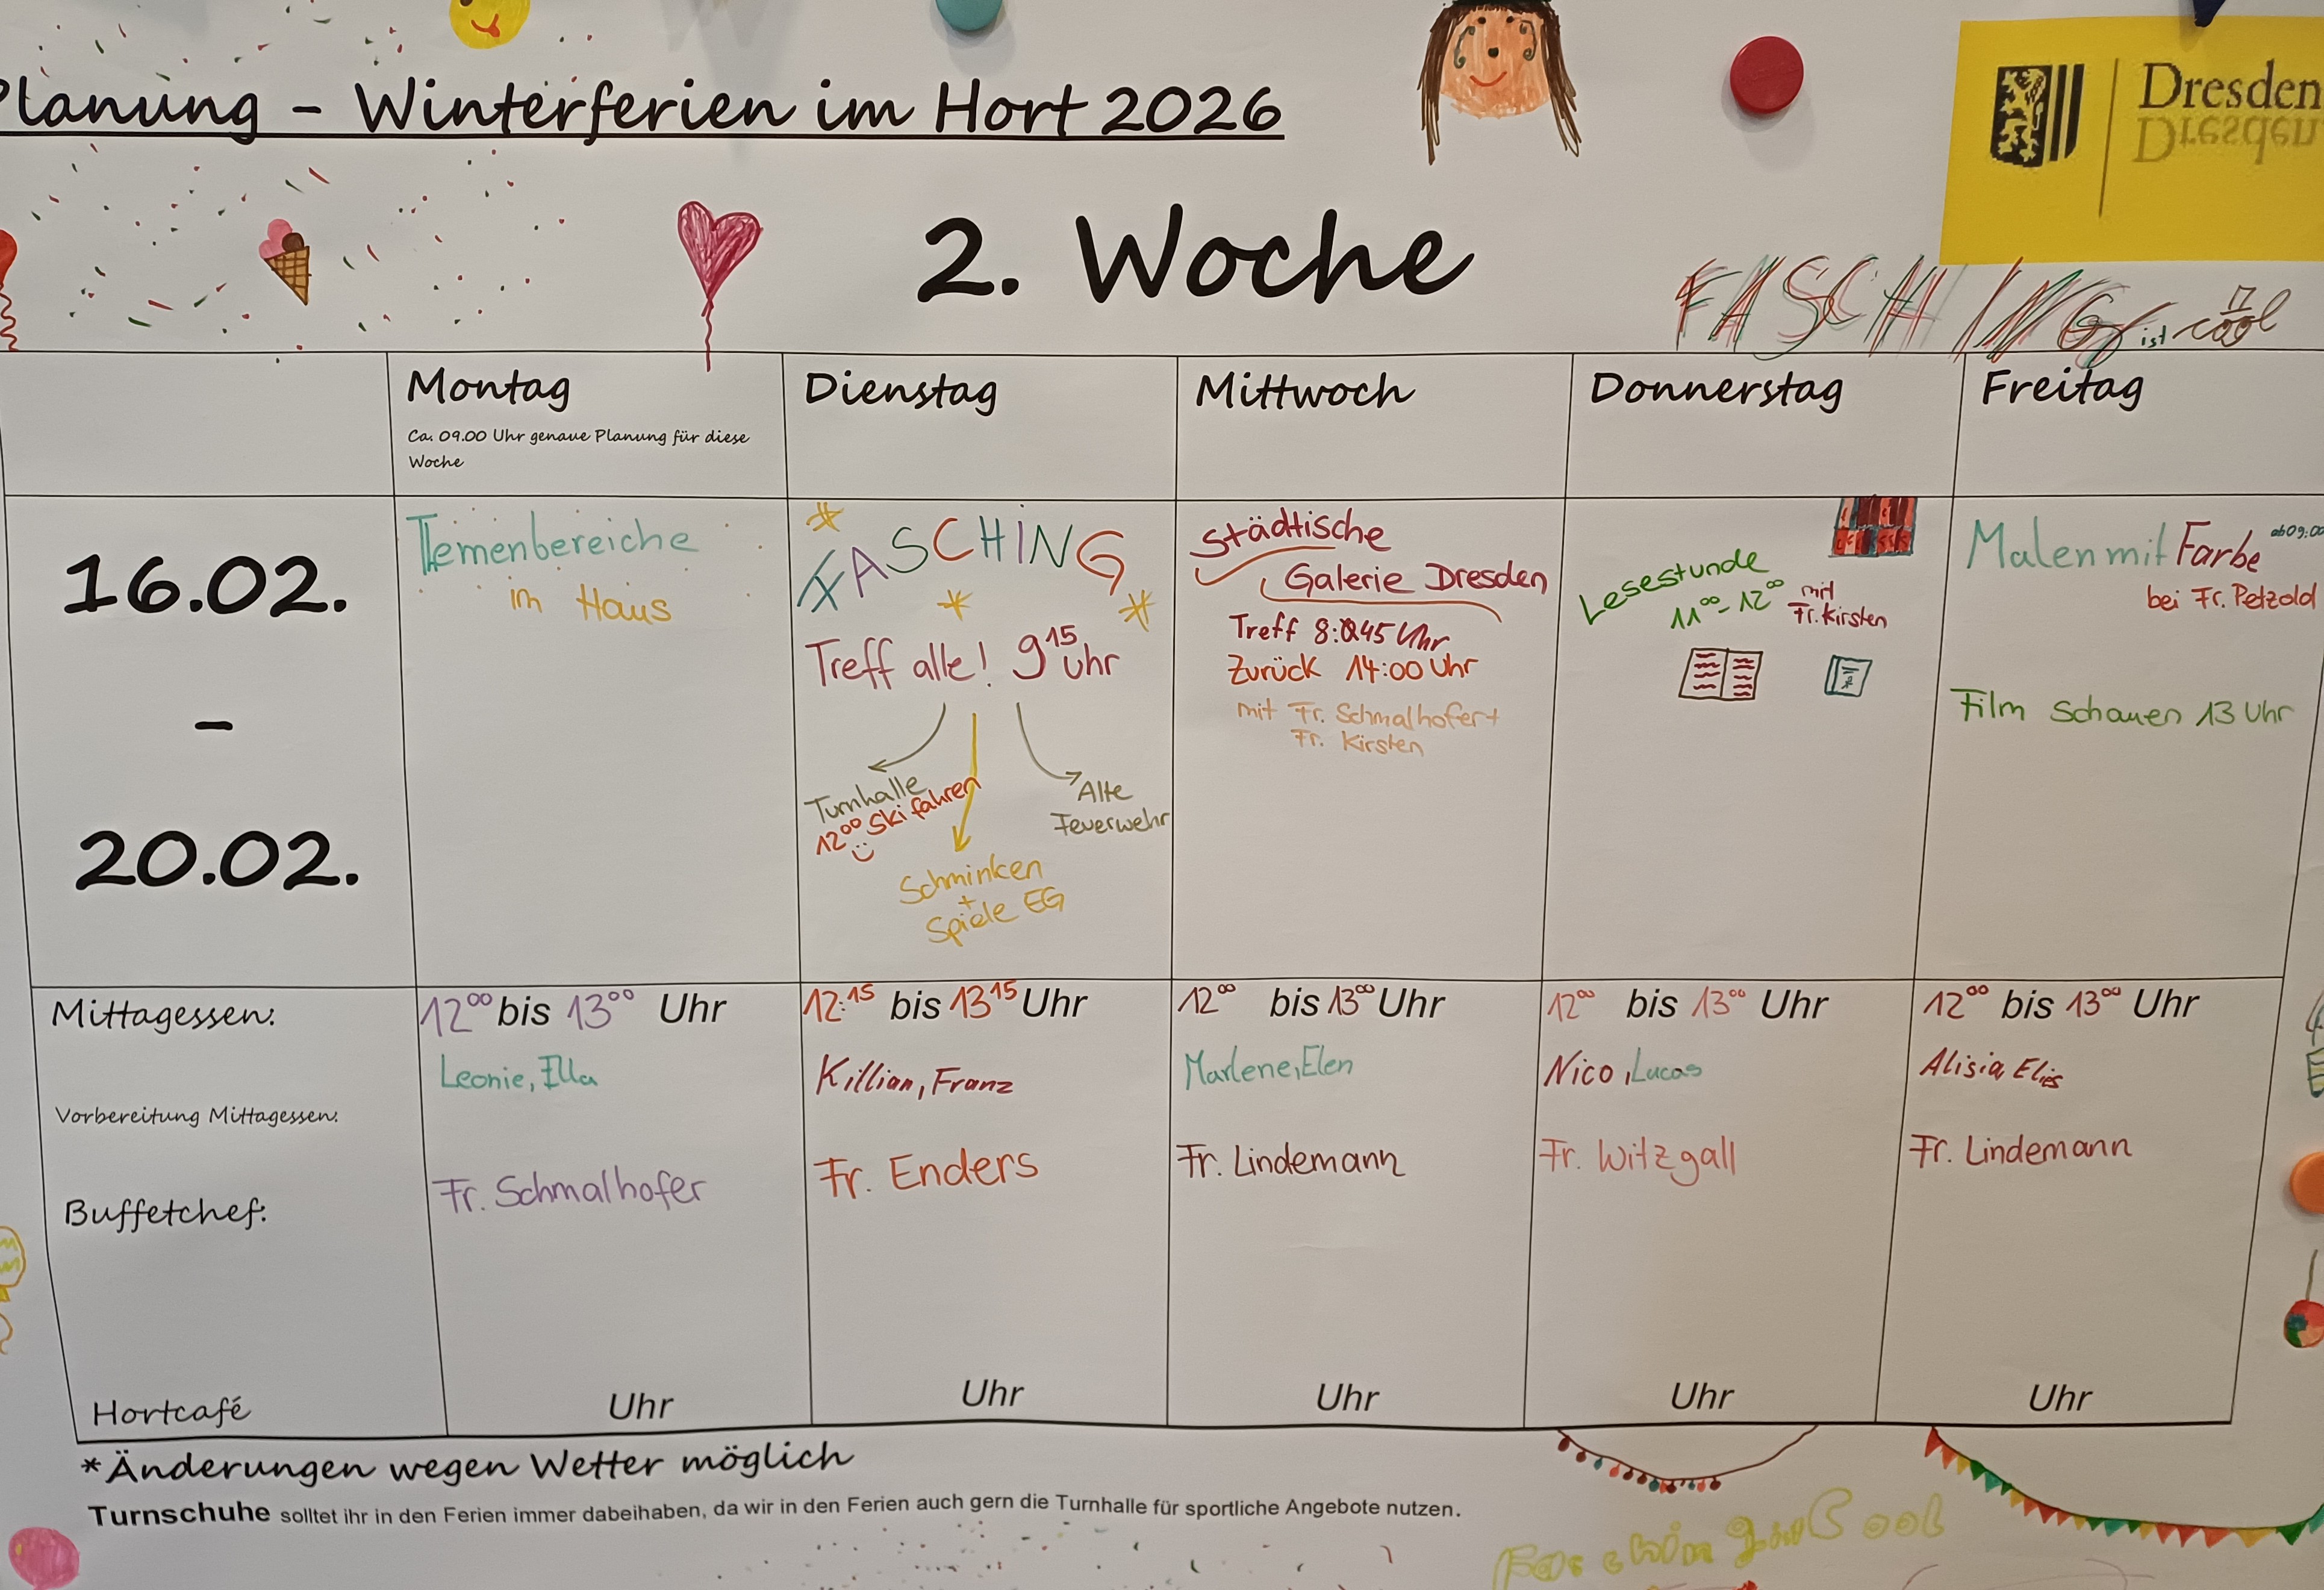 Planung - Winterferien im Hort 2026
Dresden
Dresden
2. Woche
FASCHING ist cool
Montag
Ca. 09.00 Uhr genaue Planung für diese
Woche
Dienstag
Mittwoch
Donnerstag
Freitag
16.02.
-
20.02.
Temenbereiche
im Haus
FASCHING
Treff alle! 9 15 Uhr
Turnhalle
12 00 Ski fahren
Alte
Feuerwehr
Schminken
+
Spiele EG
Städtische
Galerie Dresden
Treff 8:45 Uhr
Zurück 14:00 Uhr
mit Fr. Schmalhofer +
Fr. Kirsten
Lesestunde
11 00 - 12 00 mit
Fr. Kirsten
Malen mit Farbe ab 09:00
bei Fr. Petzold
Film Schauen 13 Uhr
Mittagessen:
12 00 bis 13 00 Uhr
12:15 bis 13 15 Uhr
12 00 bis 13 00 Uhr
12 00 bis 13 00 Uhr
12 00 bis 13 00 Uhr
Vorbereitung Mittagessen:
Leonie, Illa
Killian, Franz
Marlene, Elen
Nico, Lucas
Alisia, Elies
Buffetchef:
Fr. Schmalhofer
Fr. Enders
Fr. Lindemann
Fr. Witzgall
Fr. Lindemann
Hortcafé
Uhr
Uhr
Uhr
Uhr
Uhr
*Änderungen wegen Wetter möglich
Turnschuhe solltet ihr in den Ferien immer dabeihaben, da wir in den Ferien auch gern die Turnhalle für sportliche Angebote nutzen.